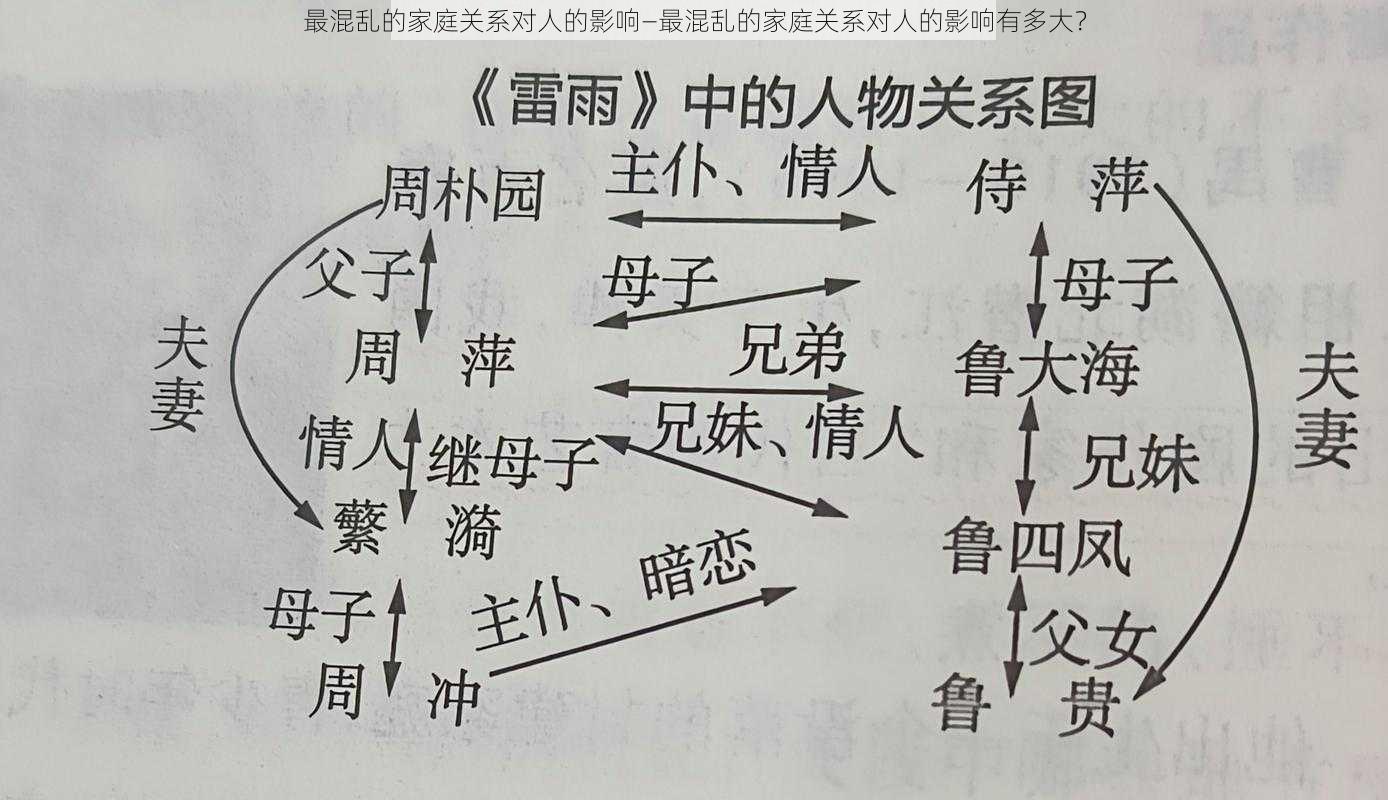 最混乱的家庭关系对人的影响—最混乱的家庭关系对人的影响有多大?
《雷雨》中的人物关系图
周朴园 主仆、情人 侍 萍
父子 母子 母子
夫妻 周 萍 兄弟 鲁大海 夫妻
情人 继母子 兄妹、情人 兄妹
蘩 漪 鲁四凤
母子 主仆、暗恋 父女
周 冲 鲁 贵